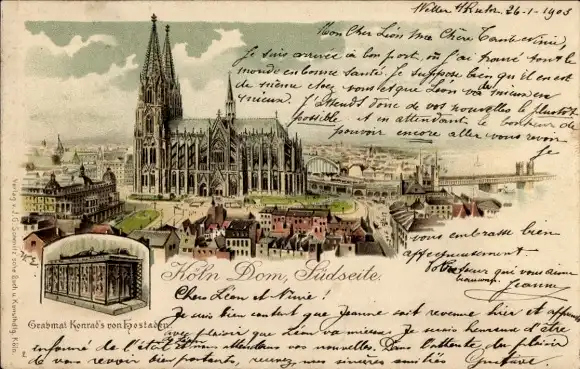 26-1-1903
Mon Cher Léon Ma Chère Tante Ninie,
Je suis arrivée à bon port, où j'ai trouvé tout le
monde en bonne santé. Je suppose bien qu'il en est
de même chez vous et que Léon va de mieux en
mieux. J'attends donc de vos nouvelles le plus tôt
possible et en attendant le bonheur de
pouvoir encore aller vous revoir
je
vous embrasse bien
affectueusement.
Votre sœur qui vous aime
beaucoup. Jeanne
Köln Dom, Südseite.
Grabmal Konrad's von Hostaden
Cher Léon et Ninie!
Je suis bien content que Jeanne soit revenue hier et apprend
avec plaisir que Léon va mieux. Je serais heureux d'être
informé de l'état de Léon et attendons vos nouvelles. Dans l'attente du plaisir
de vous revoir bien portants, recevez mes sincères amitiés Gustave.